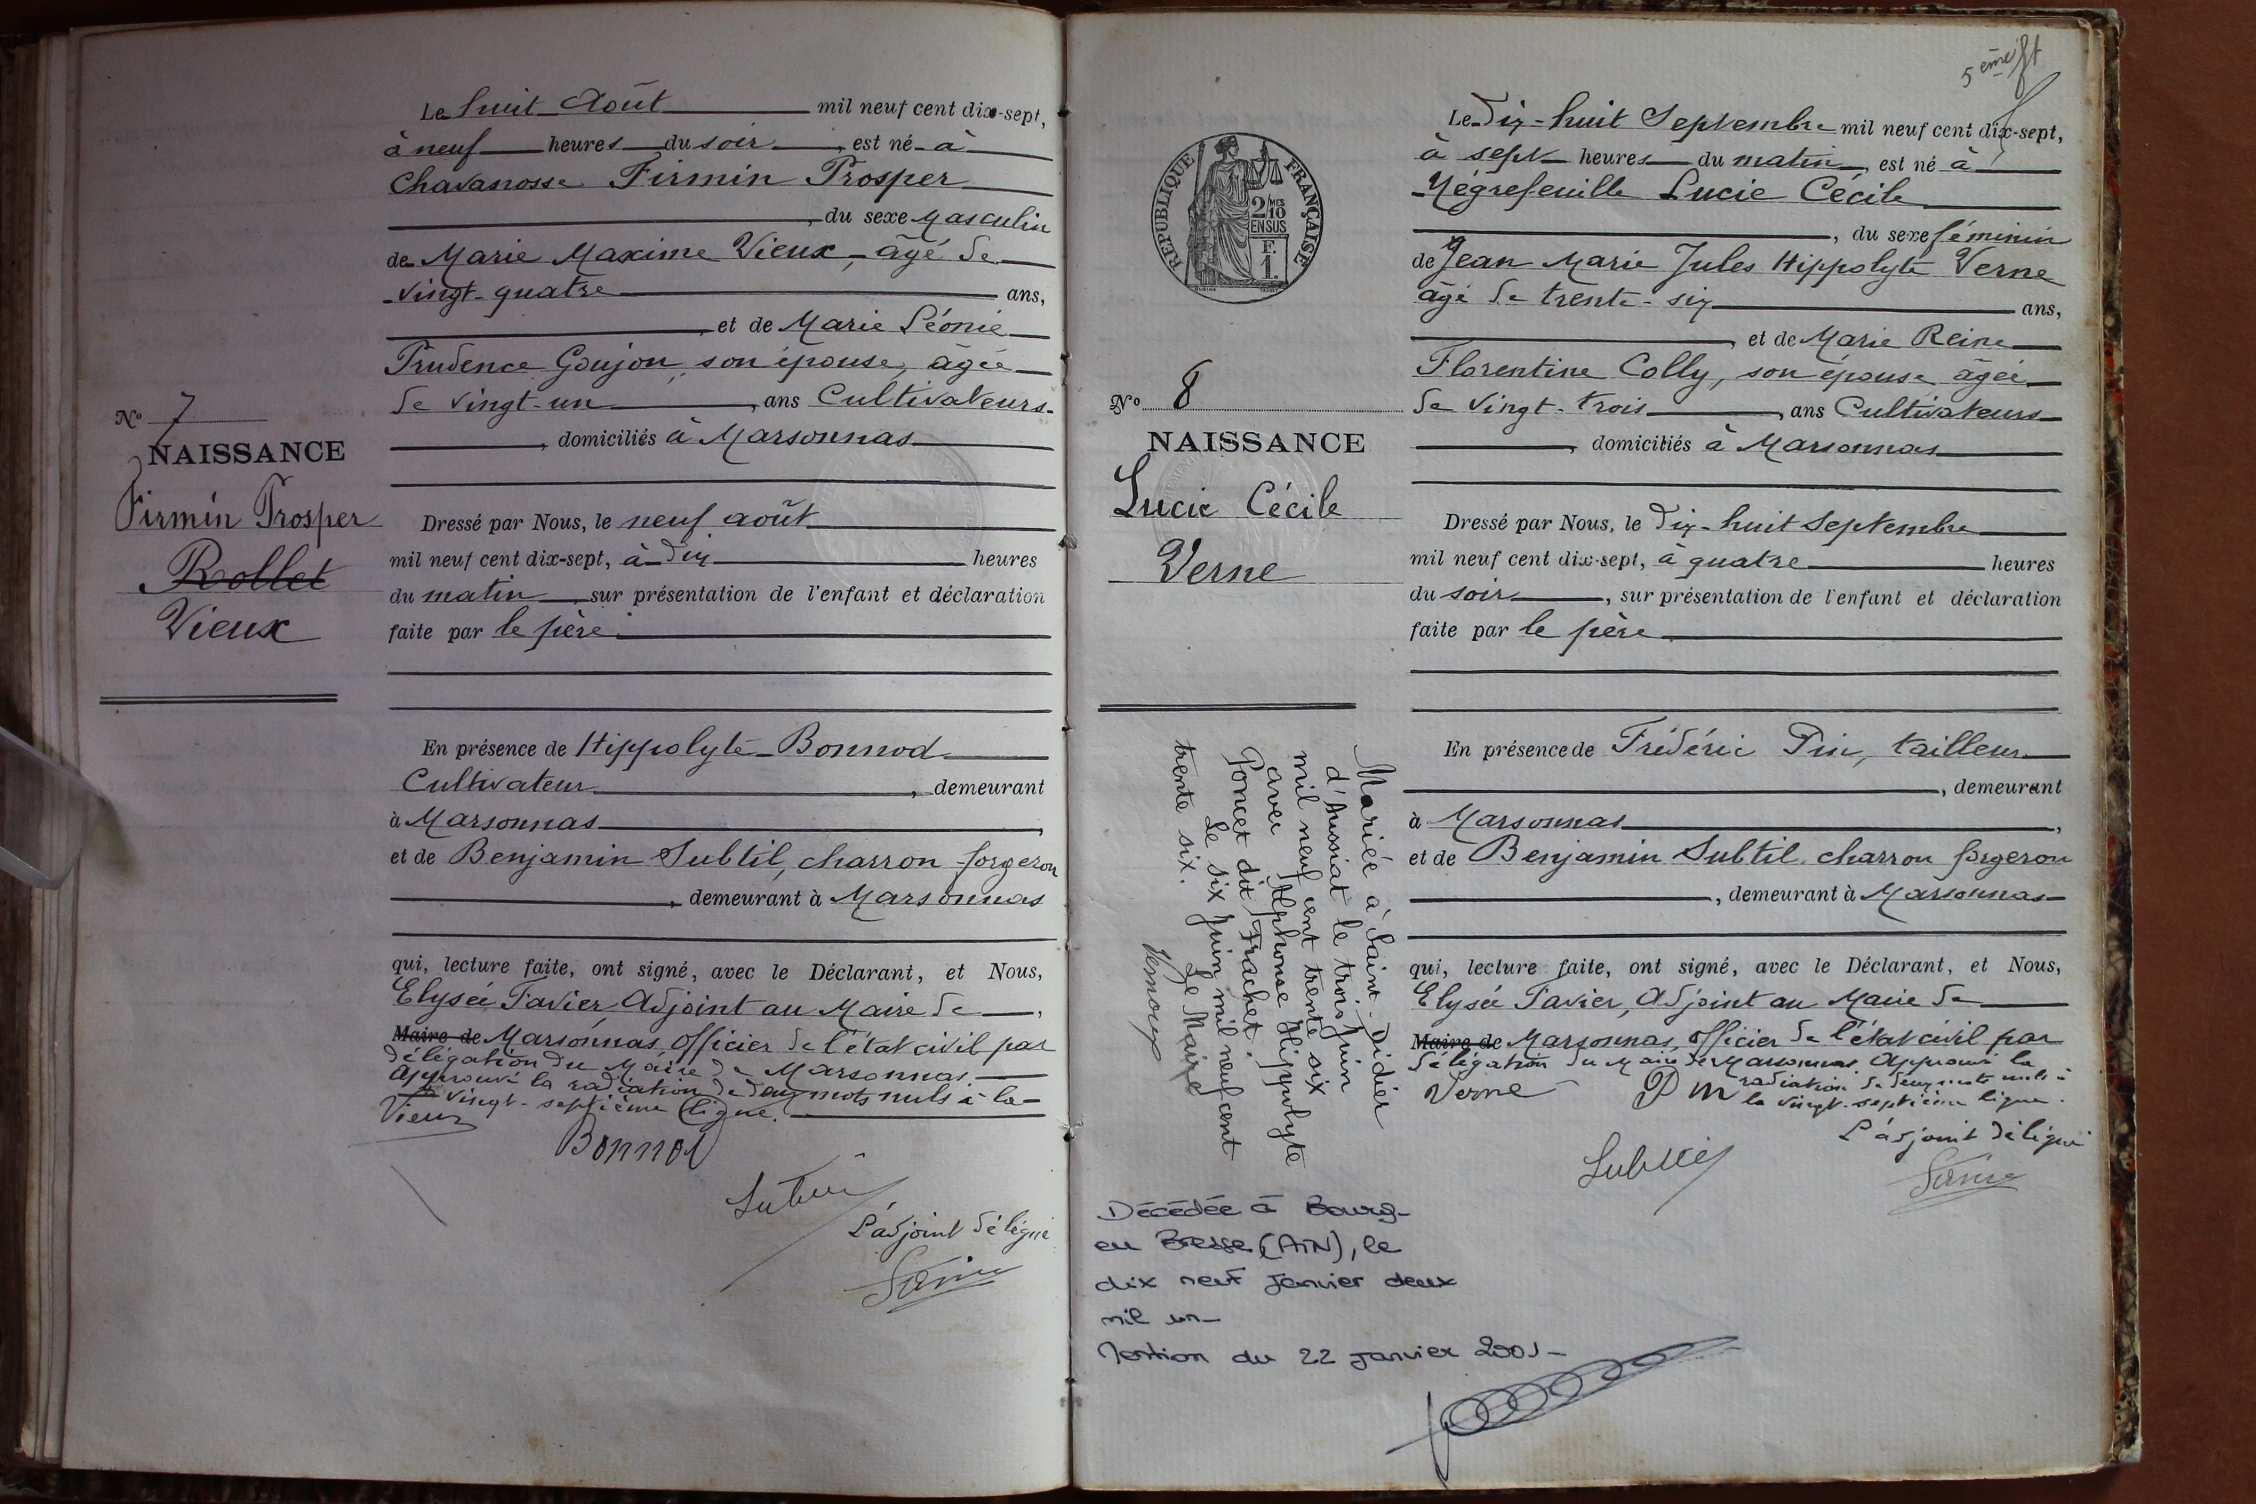 Le huit Août mil neuf cent dix-sept,
à neuf heures du soir, est né à
Chavanosse Firmin Prosper
, du sexe Masculin
de Marie Maxime Vieux, âgé de
vingt-quatre ans,
, et de Marie Léonie
Prudence Goujon, son épouse, âgée
de vingt-un, ans Cultivateurs
, domiciliés à Marsonnas
No 7
NAISSANCE
Firmin Prosper
Rollet
Vieux
Dressé par Nous, le neuf août
mil neuf cent dix-sept, à dix heures
du matin, sur présentation de l'enfant et déclaration
faite par le père
En présence de Hippolyte Bonnod
Cultivateur, demeurant
à Marsonnas,
et de Benjamin Subtil, charron-forgeron
, demeurant à Marsonnas
qui, lecture faite, ont signé, avec le Déclarant, et Nous,
Elysée Favier, Adjoint au Maire de,
Maire de Marsonnas, officier de l'état civil par
délégation du Maire de Marsonnas.
Approuvé la radiation de deux mots nuls à la
vingt-septième ligne.
Vieux
Bonnod
Subtil
L'adjoint délégué
Favier
5ème ft
Le Dix-huit Septembre mil neuf cent dix-sept,
à sept heures du matin, est né à
Négrefeuille Lucie Cécile
, du sexe féminin
de Jean Marie Jules Hippolyte Verne
âgé de trente-six ans,
, et de Marie Reine
Florentine Colly, son épouse âgée
de vingt-trois, ans Cultivateurs
, domiciliés à Marsonnas
RÉPUBLIQUE FRANÇAISE
2/10 MES
EN SUS
F.
1.
No 8
NAISSANCE
Lucie Cécile
Verne
Dressé par Nous, le Dix-huit Septembre
mil neuf cent dix-sept, à quatre heures
du soir, sur présentation de l'enfant et déclaration
faite par le père
En présence de Frédéric Pin, tailleur
, demeurant
à Marsonnas,
et de Benjamin Subtil charron forgeron
, demeurant à Marsonnas
qui, lecture faite, ont signé, avec le Déclarant, et Nous,
Elysée Favier, Adjoint au Maire de
Maire de Marsonnas, officier de l'état civil par
délégation du Maire de Marsonnas. Approuvé la
radiation de deux mots nuls à
la vingt-septième ligne.
Verne
Pin
Subtil
L'adjoint délégué
Favier
Mariée à Saint-Didier
d'Aussiat le trois juin
mil neuf cent trente six
avec Alphonse Hippolyte
Poncet dit Frachet.
Le six juin mil neuf cent
trente six. Le Maire
Décédée à Bourg-
en Bresse (AIN), le
dix neuf janvier deux
mil un-
Mention du 22 janvier 2001-